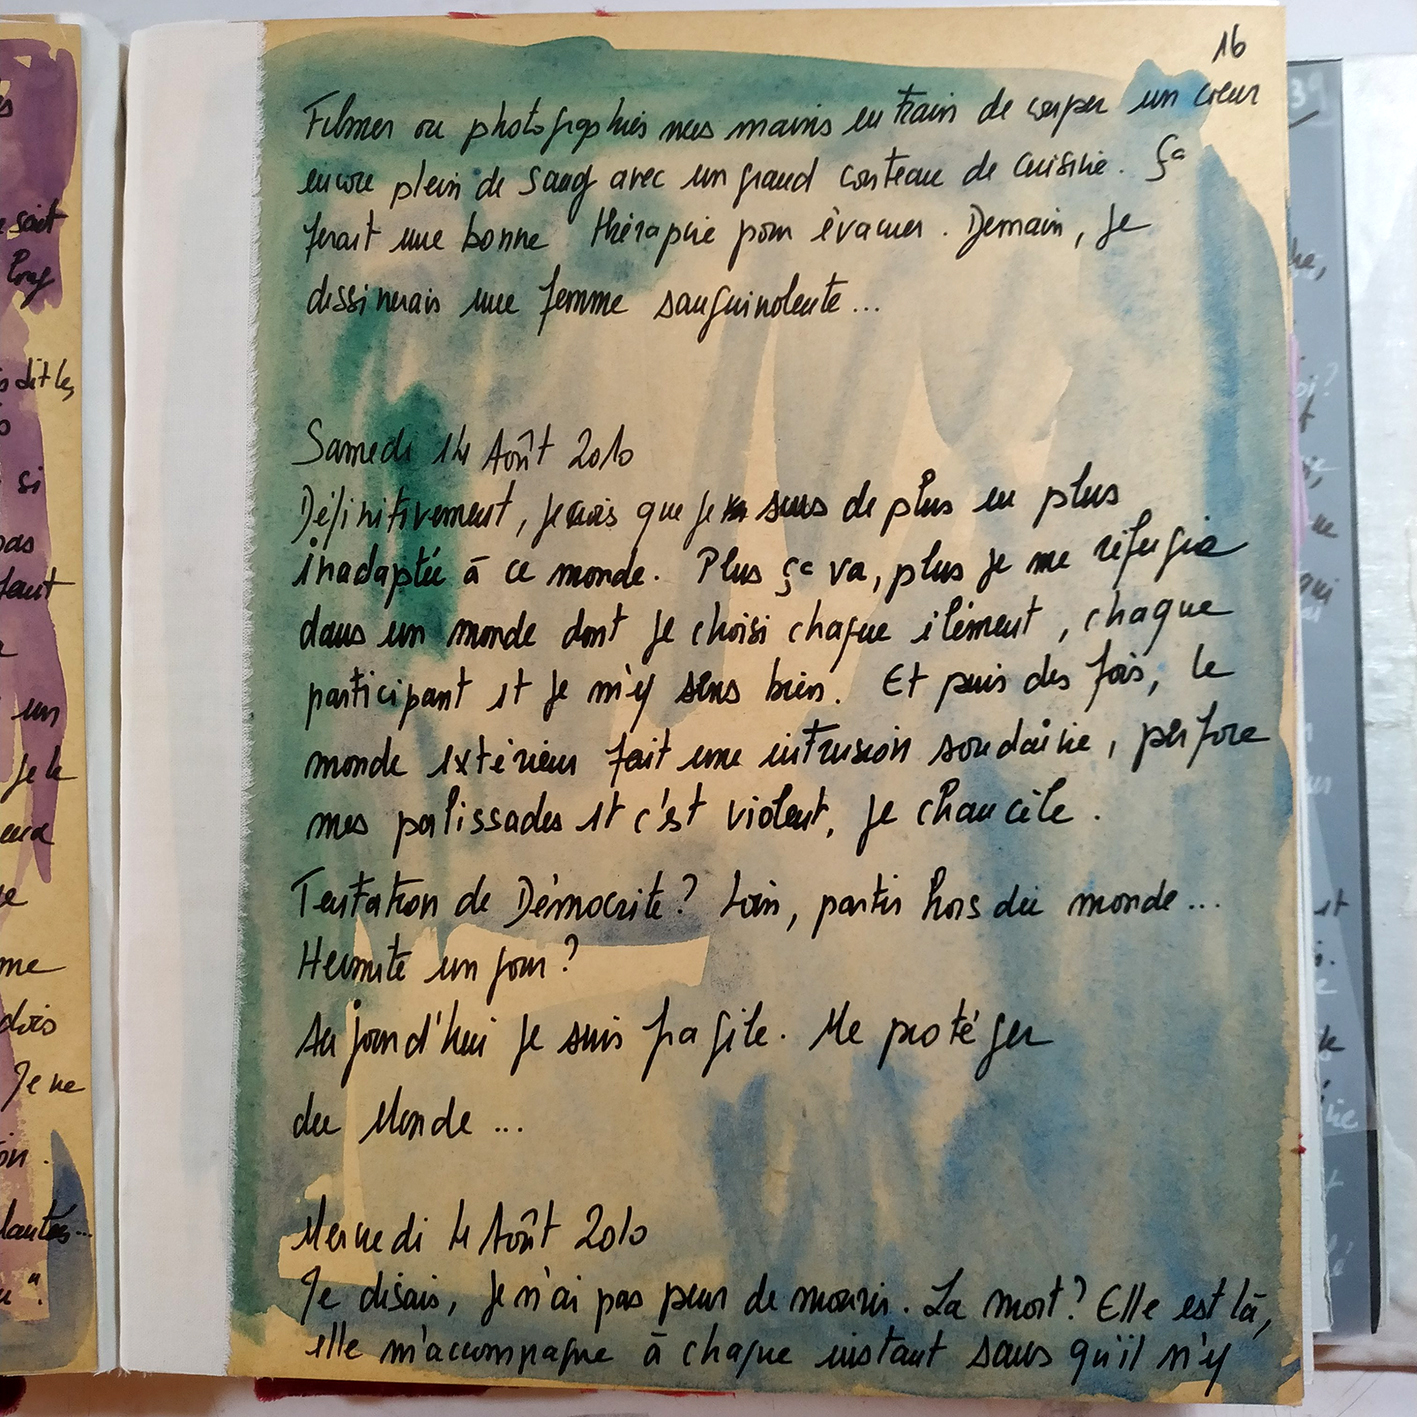 16
Filmer ou photographiés mes mains en train de couper un cœur
encore plein de sang avec un grand couteau de cuisine. Ça
ferait une bonne thérapie pour évacuer. Demain, je
dessinerais une femme sanguinolente...
Samedi 14 Août 2010
Définitivement, je crois que je suis de plus en plus
inadaptée à ce monde. Plus ça va, plus je me réfugie
dans un monde dont je choisi chaque élément, chaque
participant et je m'y sens bien. Et puis des fois, le
monde extérieur fait une intrusion soudaine, perfore
mes palissades et c'est violent, je chancèle.
Tentation de Démocrite? Loin, partir hors du monde...
Hermite un jour?
Aujourd'hui je suis fragile. Me protéger
du Monde...
Mercredi 4 Août 2010
Je disais, je n'ai pas peur de mourir. La mort? Elle est là,
elle m'accompagne à chaque instant sans qu'il n'y